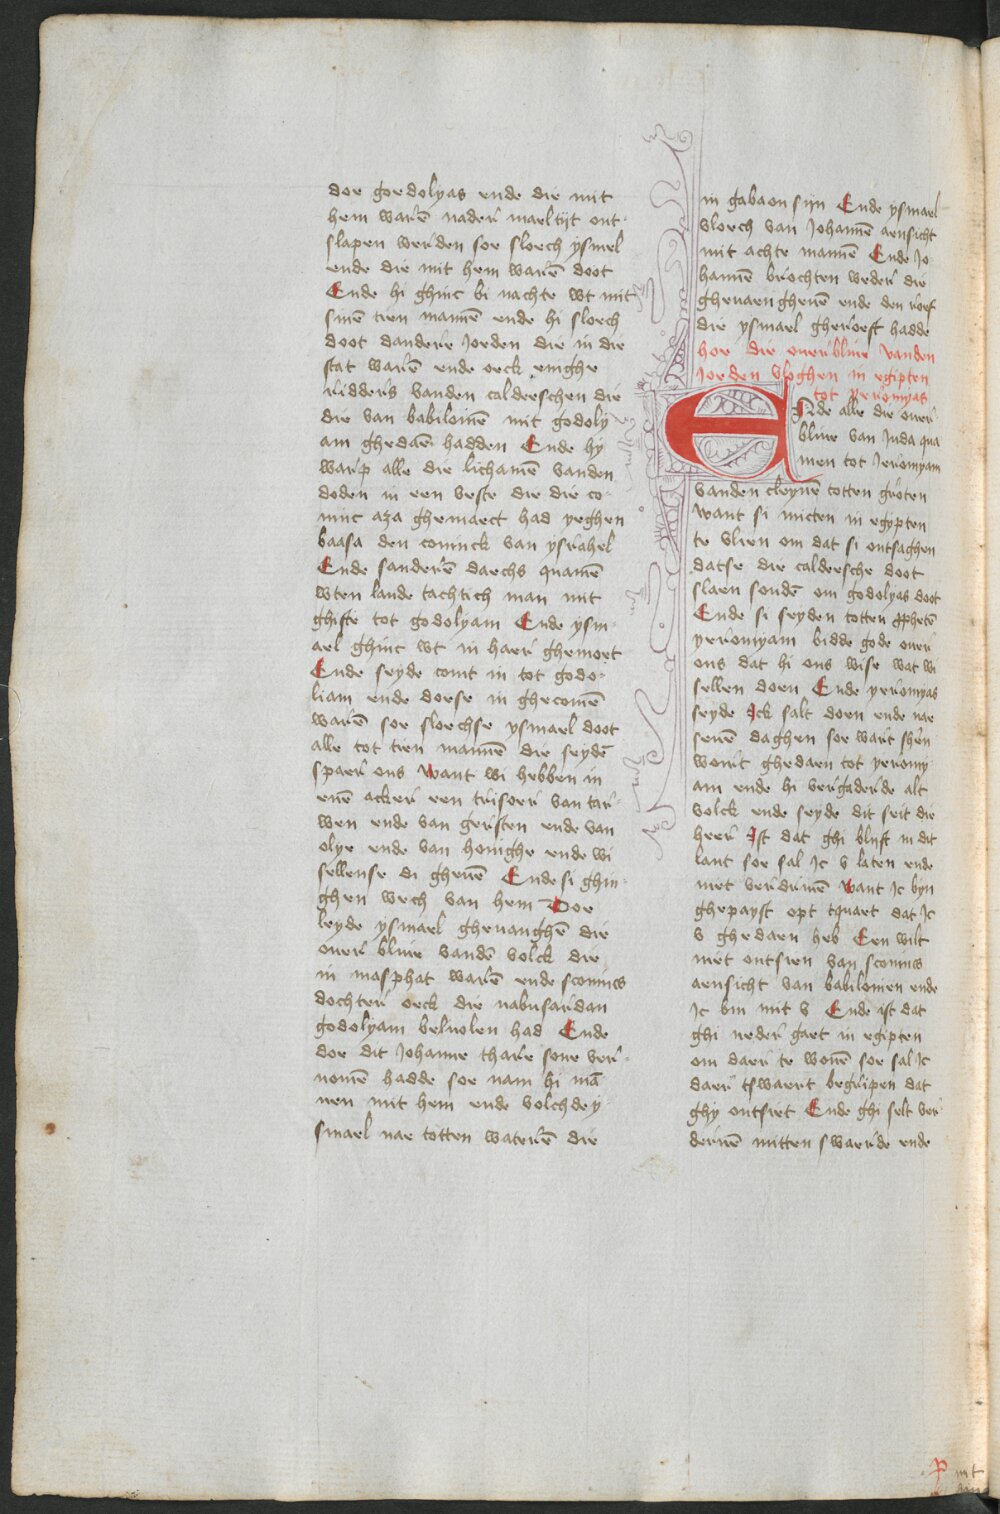 doe godolyas ende die mit
hem warē nader maeltijt ont
slapen werden soe sloech ysmel
ende die mit hem warē doot
Ende hi ghinc bi nachte wt mit
sinē tien mannē ende hi sloech
doot dandere Joeden die in die
stat warē ende oeck enighe
ridders vanden caldeeschen die
die van babilonië mit godoly
am ghedaen hadden Ende hy
warp alle die lichamē vanden
doden in een veste die die co-
ninc aza ghemaect had yeghen
baasa den coninck van ysrahel
Ende sanderē daechs quamē
wten lande tachtich man mit
ghifte tot godolyam Ende ysm-
ael ghinc wt in haer ghemoet
Ende seyde comt in tot godo-
liam ende doese in ghecomē
warē soe sloechse ysmael doot
alle tot tien mannē die seydē
spaer ons want wi hebben in
enē acker een trisoer van tar-
wen ende van gersten ende van
olye ende van honighe ende wi
sellense di gheuē Ende si ghin-
ghen wech van hem Doe
leyde ysmael gheuanghē die
ouer bliue vandē volck die
in masphat warē ende sconincs
dochter oeck die nabusardan
godolyam beluolen had Ende
doe dit Johanne thare sone ver-
nomē hadde soe nam hi mā
nen mit hem ende volchdey
smael nae totten waterē die
in gabaon sijn Ende ysmael
vloech van Johannē aensicht
mit achte mannē Ende Jo
hannē brochten weder die
gheuaengheuē ende den roef
die ysmael gheroeft hadde
hoe die ouerbliue vanden
Joeden vloghen in egipten
tot yeromyas
ENde alle die ouer
bliue van Juda qua
men tot Jeromyam
vanden cleynē totten groten
want si micten in egypten
te vlien om dat si ontsaghen
datse die caldeesche doot
slaen soudē om godolyas doot
Ende si seyden totten prophetē
yeromyam bidde gode ouer
ons dat hi ons wise wat wi
sellen doen Ende yeromyas
seyde Ick salt doen ende nae
seuē daghen soe wart sheren
wort ghedaen tot yeromy-
am ende hi vergaderde alt
volck ende seyde dit seit die
heer Ist dat ghi blijft in dit
lant soe sal Ic v laten ende
niet verdriuē want Ic byn
ghepayst opt tquaet dat Ic
v ghedaen heb Een wilt
niet ontsien van sconincs
aensicht van babilonien ende
Ic bin mit v Ende ist dat
ghi neder gaet in egipten
om daer te wonē soe sal Ic
daer tswaert begripen dat
ghy ontsiet Ende ghi selt ver-
deruē mitten swaerde ende